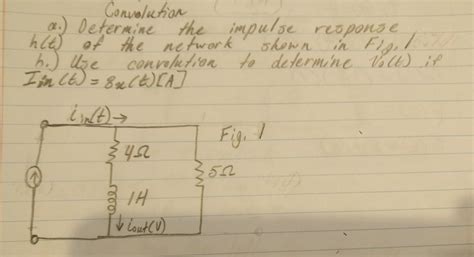 Convolution
a.) Determine the impulse response
h(t) of the network shown in Fig. 1
b.) Use convolution to determine Vo(t) if
Iin(t) = 8u(t)[A]
iin(t)→
Fig. 1
4Ω
5Ω
1H
↓ iout(V)